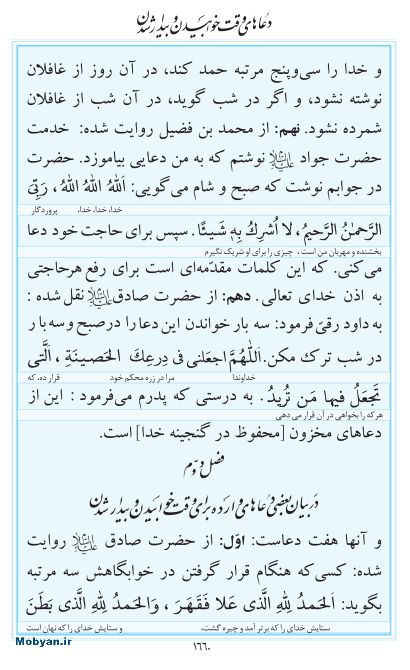 دعاهای وقت خوابیدن و بیدار شدن
و خدا را سی‌وپنج مرتبه حمد کند، در آن روز از غافلان
نوشته نشود، و اگر در شب گوید، در آن شب از غافلان
شمرده نشود. نهم: از محمد بن فضیل روایت شده: خدمت
حضرت جواد علیه‌السلام نوشتم که به من دعایی بیاموزد. حضرت
در جوابم نوشت که صبح و شام می‌گویی: اَللهُ اللهُ اللهُ ، رَبِّیَ
خدا، خدا، خدا، پروردگار
الرَّحمنُ الرَّحیمُ، لا اُشرِكُ بِهِ شَیئًا. سپس برای حاجت خود دعا
بخشنده و مهربان من است، چیزی را برای او شریک نگیرم
می‌کنی. که این کلمات مقدّمه‌ای است برای رفع هرحاجتی
به اذن خدای تعالی. دهم: از حضرت صادق علیه‌السلام نقل شده :
به داود رقیّ فرمود: سه بار خواندن این دعا را در صبح و سه بار
در شب ترك مکن. اَللّهُمَّ اجعَلنی فی دِرعِكَ الحَصینَةِ ، الَّتی
خداوندا مرا در زره محکم خود قرار ده، که
تَجعَلُ فیها مَن تُریدُ . به درستی که پدرم می‌فرمود : این از
هر که را بخواهی در آن قرار می دهی
دعاهای مخزون [محفوظ در گنجینه خدا] است.
فصل دوّم
در بیان بعضی دعاهای وارده برای وقت خوابیدن و بیدار شدن
و آنها هفت دعاست: اوّل: از حضرت صادق علیه‌السلام روایت
شده: کسی‌که هنگام قرار گرفتن در خوابگاهش سه مرتبه
بگوید: اَلحَمدُ لِلّهِ الَّذی عَلا فَقَهَرَ ، وَالحَمدُ لِلّهِ الَّذی بَطَنَ
ستایش خدای را که برتر آمد و چیره گشت، و ستایش خدای را که نهان است
۱۶۶۰
Mobyan.ir